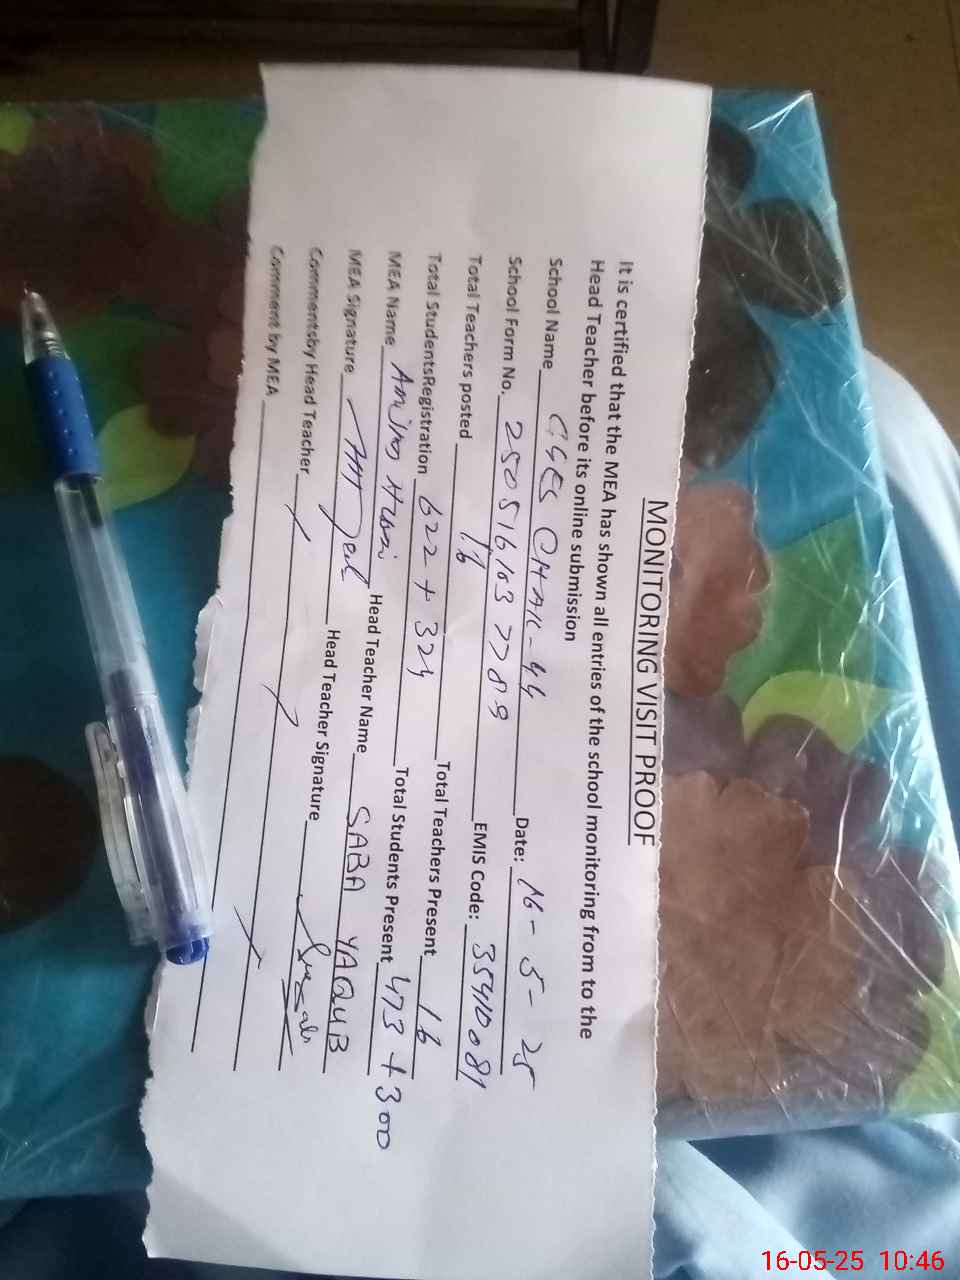 MONITORING VISIT PROOF
It is certified that the MEA has shown all entries of the school monitoring from to the
Head Teacher before its online submission
School Name GGES CHAK-44 Date: 16-5-25
School Form No. 25051610377889 EMIS Code: 35410081
Total Teachers posted 16 Total Teachers Present 16
Total StudentsRegistration 622 + 324 Total Students Present 473 + 300
MEA Name Head Teacher Name SABA YAQUB
MEA Signature Head Teacher Signature
Commentsby Head Teacher
Comment by MEA
16-05-25 10:46